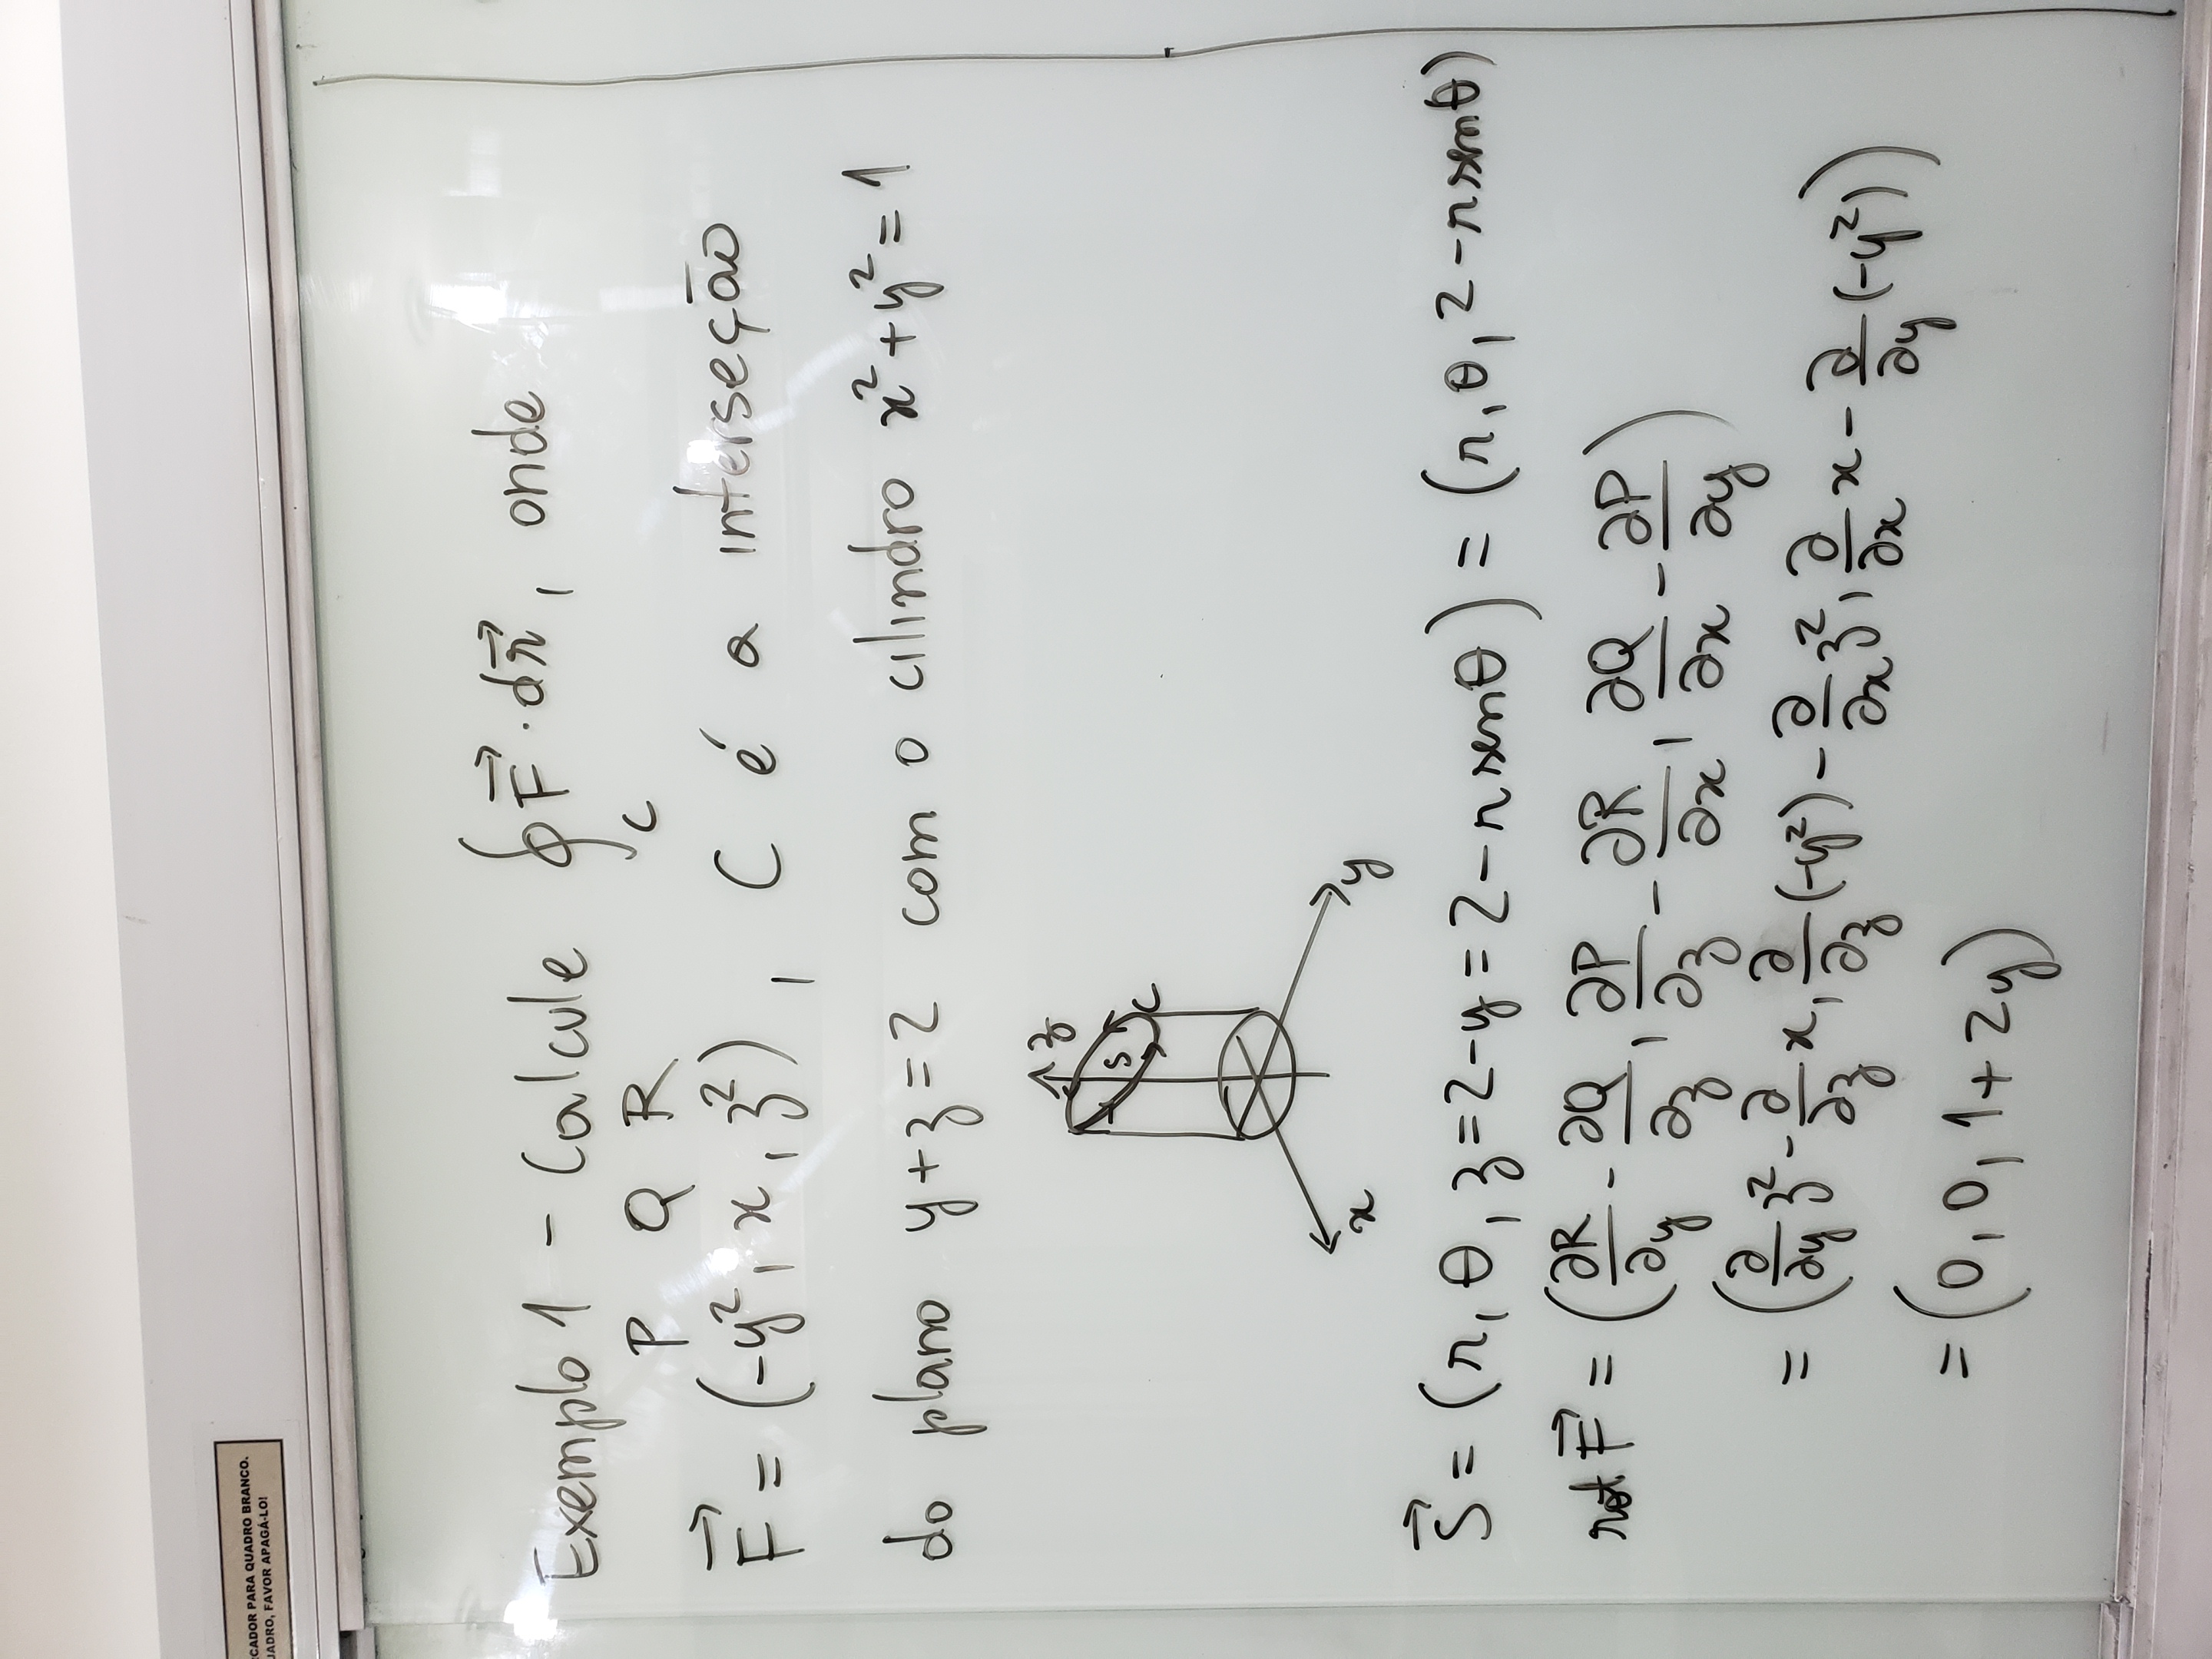 RCADOR PARA QUADRO BRANCO.
UADRO, FAVOR APAGÁ-LO!
Exemplo 1 - Calcule ∮_C F⃗ · dr⃗, onde
P Q R
F⃗ = (-y², x, z²), C é a interseção
do plano y+z=2 com o cilindro x²+y²=1
z
S
C
x
y
S⃗ = (r, θ, z=2-y=2-r senθ) = (r, θ, 2-r senθ)
rot F⃗ = (∂R/∂y - ∂Q/∂z, ∂P/∂z - ∂R/∂x, ∂Q/∂x - ∂P/∂y)
= (∂/∂y z² - ∂/∂z x, ∂/∂z (-y²) - ∂/∂x z², ∂/∂x x - ∂/∂y (-y²))
= (0, 0, 1+2y)